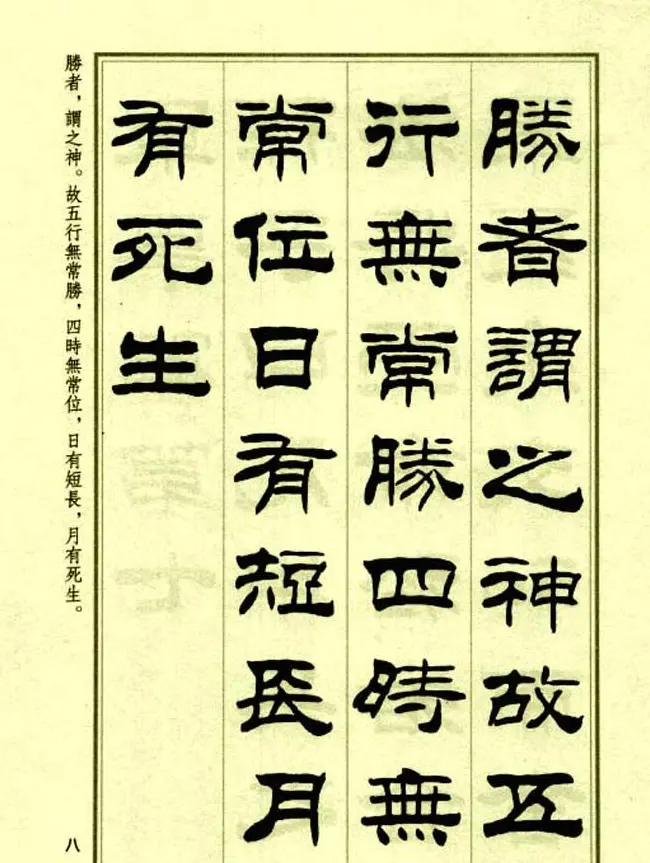 勝者謂之神故五
行無常勝四時無
常位日有短長月
有死生
勝者，謂之神。故五行無常勝，四時無常位，日有短長，月有死生。
八